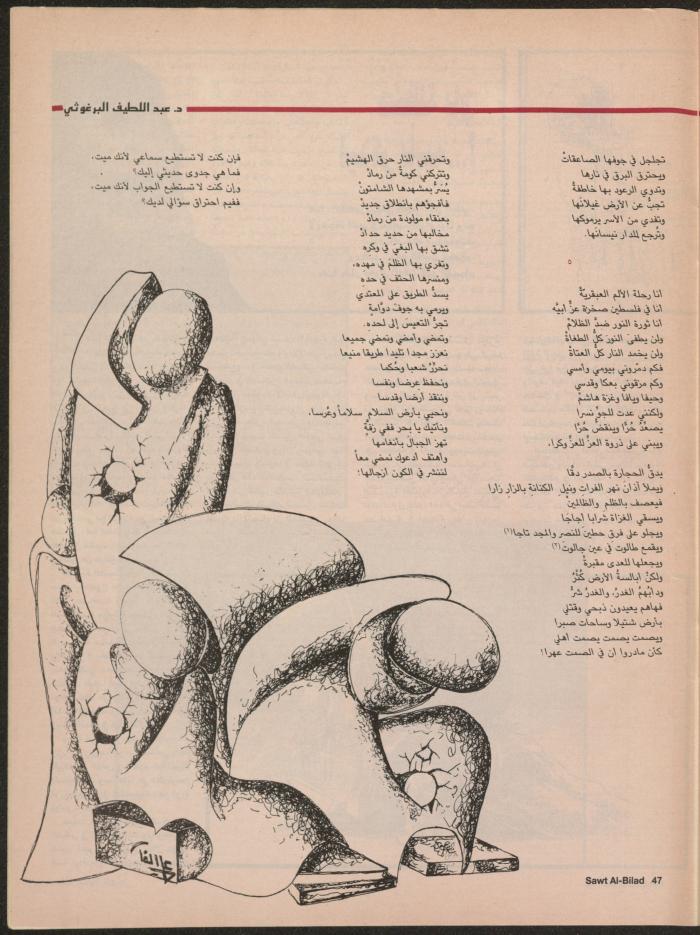 د. عبد اللطيف البرغوثي
تجلجل في جوفها الصاعقات
ويحترق البرق في نارها
وتدوي الرعود بها خاطفةً
تجبُّ عن الأرض غيلانها
وتفدي من الأسر يرموكها
وتُرجع للدار نيسانَها.
أنا رحلة الألم العبقريّة
أنا في فلسطين صخرة عزٍّ أبيّه
أنا ثورة النور ضدَّ الظلامْ
ولن يطفئ النورَ كلُّ الطغاةْ
ولن يخمد النار كلُّ العتاةْ
فكم دمّروني بيومي وأمسي
وكم مزقوني بعكا وقدسي
وحيفا ويافا وغزة هاشمْ
ولكنني عدت للجوِّ نسرا
يُصعِّدُ حُرًّا وينقضُّ حُرًّا
ويبني على ذروة العزِّ للعزِّ وكرا،
يدقُّ الحجارة بالصدر دقًا
ويملأ آذان نهر الفرات ونيل الكنانةِ بالزأر زأرا
فيعصف بالظلم والظالمينْ
ويسقي الغزاة شرابا أُجاجا
ويجلو على فرق حطين للنصر والمجد تاجا(١)
ويقمع طالوت في عين جالوت(٢)
ويجعلها للعدى مقبرةْ
ولكنَّ أبالسةَ الأرض كُثْرُ
ودأبُهمُ الغدرُ، والغدرُ شرُّ
فهاهم يعيدون ذبحي وقتلي
بأرض شتيلا وساحات صبرا
ويصمت يصمت يصمت أهلي
كأن مادروا أن في الصمت عهرا!
وتحرقني النار حرق الهشيمْ
وتتركني كومةً من رمادْ
يُسَرُّ بمشهدها الشامتونْ
فأفجؤهم بانطلاق جديدْ
بعنقاء مولودة من رمادْ
مخالبها من حديد حدادْ
تشق بها البغيَ في وكره
وتفري بها الظلمَ في مهده،
ومنسرها الحتف في حده
يسدُّ الطريق على المعتدي
ويرمي به جوفَ دوّامةٍ
تجرُّ التعيسَ إلى لحده.
وتمضي وأمضي ونمضي جميعا
نعزز مجدا تليدا طريقا منيعا
نحرِّرُ شعبا وحُكما
ونحفظ عرضا ونفسا
وننقذ أرضا وقدسا
ونحيي بأرض السلام سلاماً وعُرسا،
ونأتيك يا بحر ففي زفَّةٍ
تهز الجبالَ بأنغامها
وأهتف أدعوك نمضي معاً
لننشر في الكون أزجالها؛
فإن كنت لا تستطيع سماعي لأنك ميت،
فما هي جدوى حديثي إليك؟
وإن كنت لا تستطيع الجواب لأنك ميت،
ففيم احتراق سؤالي لديك؟
Sawt Al-Bilad 47